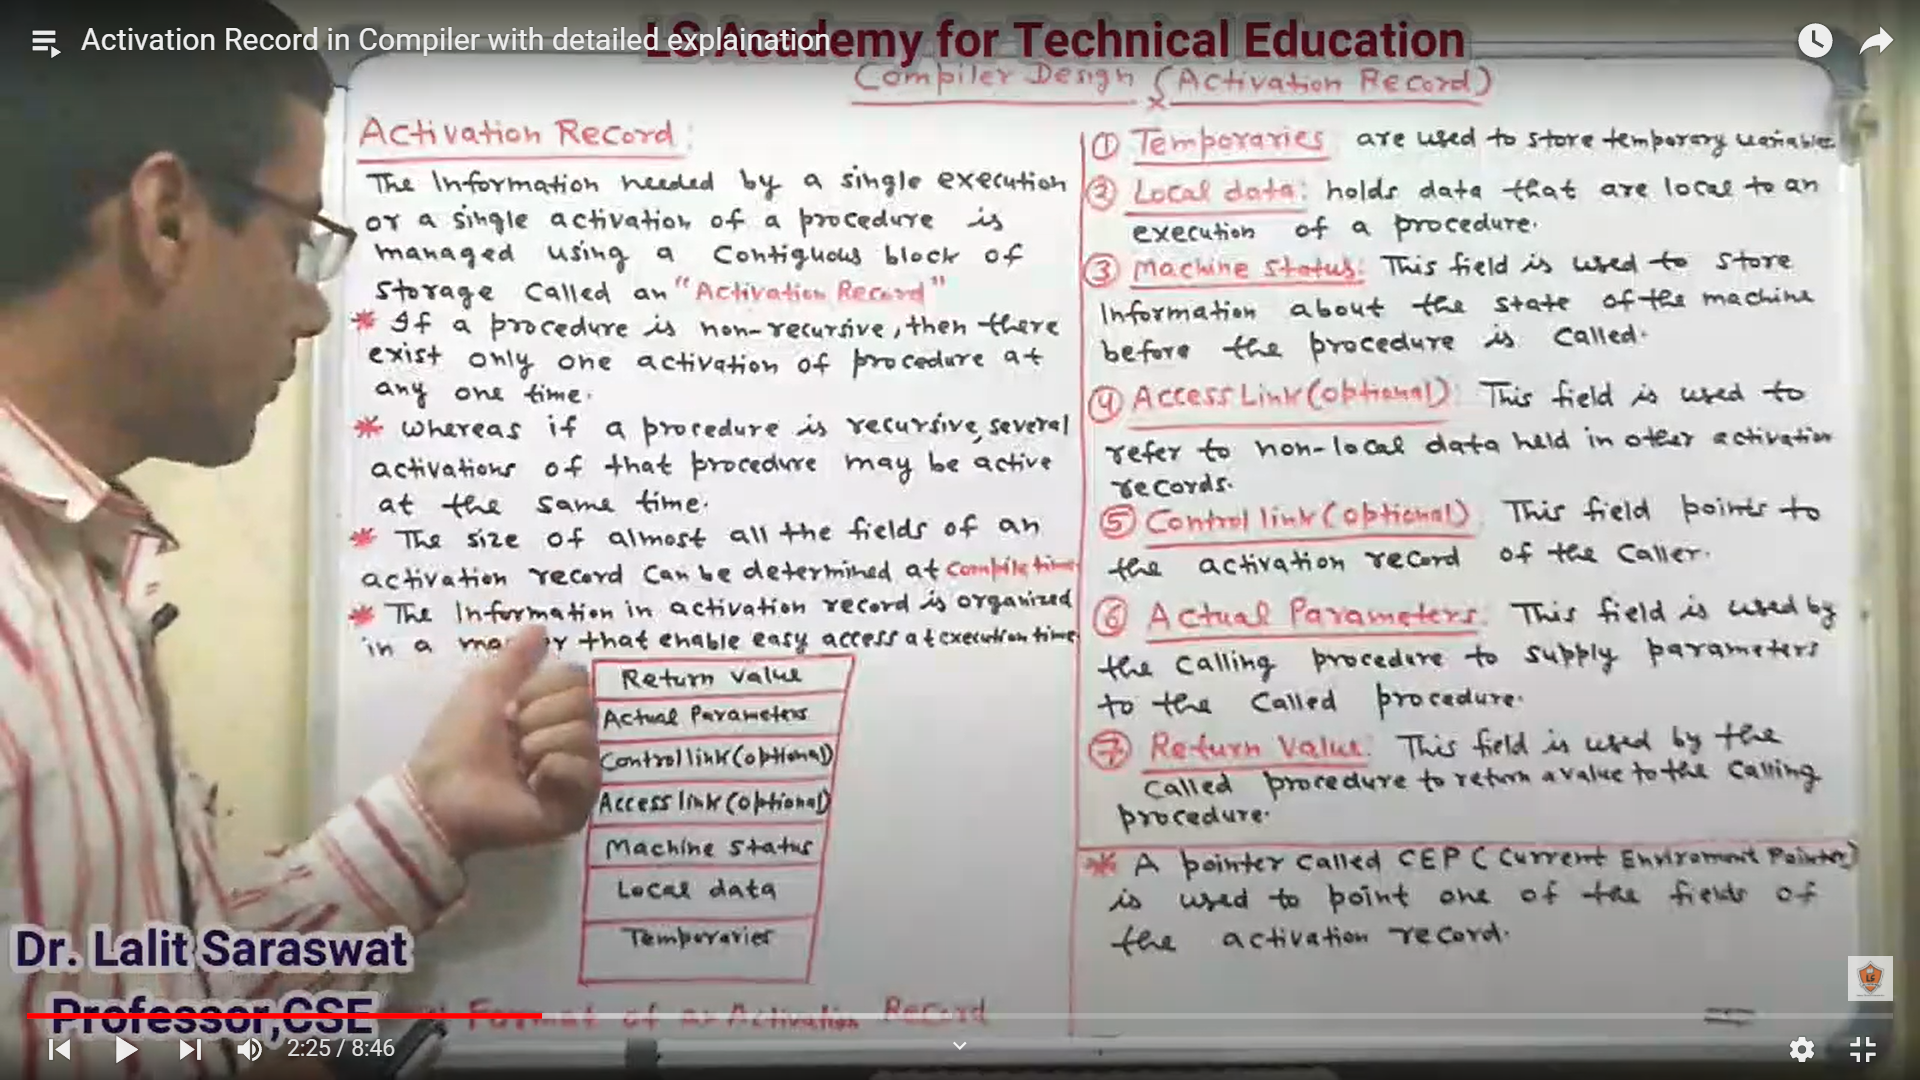 Activation Record in Compiler with detailed explaination
LS Academy for Technical Education
Compiler Design (Activation Record)
Activation Record:
The Information needed by a single execution
or a single activation of a procedure is
managed using a Contiguous block of
Storage called an "Activation Record"
* If a procedure is non-recursive, then there
exist only one activation of procedure at
any one time.
* Whereas if a procedure is recursive, several
activations of that procedure may be active
at the same time.
* The size of almost all the fields of an
activation record can be determined at compile time
* The Information in activation record is organized
in a that enable easy access at execution time
Return Value
Actual Parameters
Control link (optional)
Access link (optional)
Machine Status
Local data
Temporaries
Format of an Activation Record
① Temporaries are used to store temporary variables
② Local data: holds data that are local to an
execution of a procedure.
③ Machine Status: This field is used to store
Information about the state of the machine
before the procedure is called.
④ Access Link (optional): This field is used to
refer to non-local data held in other activation
records.
⑤ Control link (optional) This field points to
the activation record of the caller.
⑥ Actual Parameters: This field is used by
the calling procedure to supply parameters
to the called procedure.
⑦ Return Value: This field is used by the
called procedure to return a value to the calling
procedure.
* A pointer called CEP (Current Enviroment Pointer)
is used to point one of the fields of
the activation record.
Dr. Lalit Saraswat
Professor,CSE
2:25 / 8:46